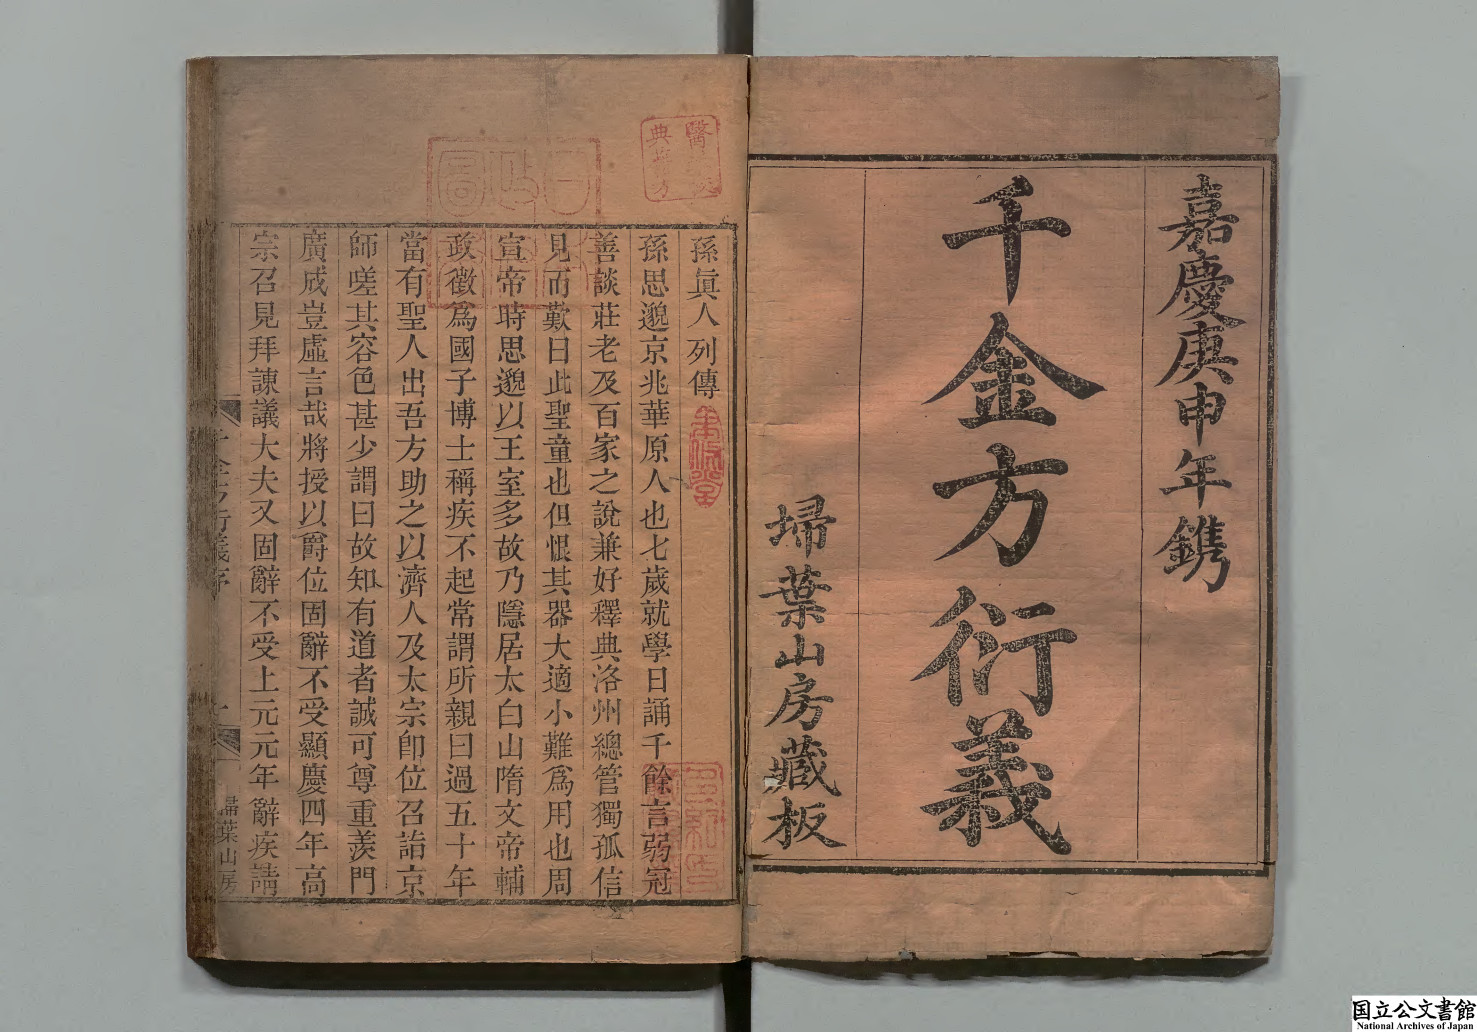 嘉慶庚申年鐫
千金方衍義
埽葉山房藏板
孫眞人列傳
孫思邈京兆華原人也七歲就學日誦千餘言弱冠
善談莊老及百家之說兼好釋典洛州總管獨孤信
見而歎曰此聖童也但恨其器大適小難爲用也周
宣帝時思邈以王室多故乃隱居太白山隋文帝輔
政徵爲國子博士稱疾不起常謂所親曰過五十年
當有聖人出吾方助之以濟人及太宗卽位召詣京
師嗟其容色甚少謂曰故知有道者誠可尊重羨門
廣成豈虛言哉將授以爵位固辭不受顯慶四年高
宗召見拜諫議大夫又固辭不受上元元年辭疾請
千金方衍義序
一
埽葉山房
国立公文書館
National Archives of Japan